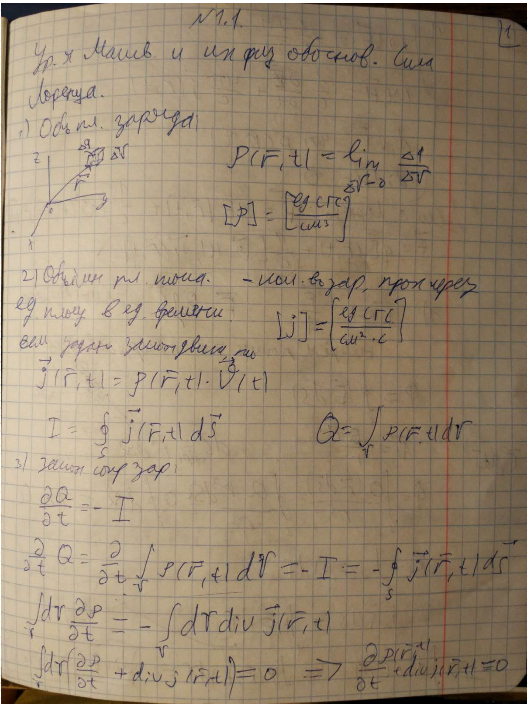 №1.1. 1
Ур-я Максв и их физ обоснов. Сила
Лоренца.
1) Объ пл. заряда
z Δq ΔV
r̄ ρ(r̄,t) = lim_{ΔV→0} Δq/ΔV
0 y
x [ρ] = [ед СГС/см³]
2) Объ пл тока. - кол. во зар, прох через
ед площ в ед времени
[j] = [ед СГС/см²·с]
если задан закон движ, то
j⃗(r̄,t) = ρ(r̄,t)·V⃗(t)
I = ∮_S j⃗(r̄,t) ds⃗ Q = ∫_V ρ(r̄,t) dV
3) Закон сохр зар
∂Q/∂t = - I
∂/∂t Q = ∂/∂t ∫_V ρ(r̄,t) dV = - I = - ∮_S j⃗(r̄,t) ds⃗
∫_V dV ∂ρ/∂t = - ∫_V dV div j⃗(r̄,t)
∫_V dV (∂ρ/∂t + div j(r̄,t)) = 0 => ∂ρ(r̄,t)/∂t + div j(r̄,t) = 0